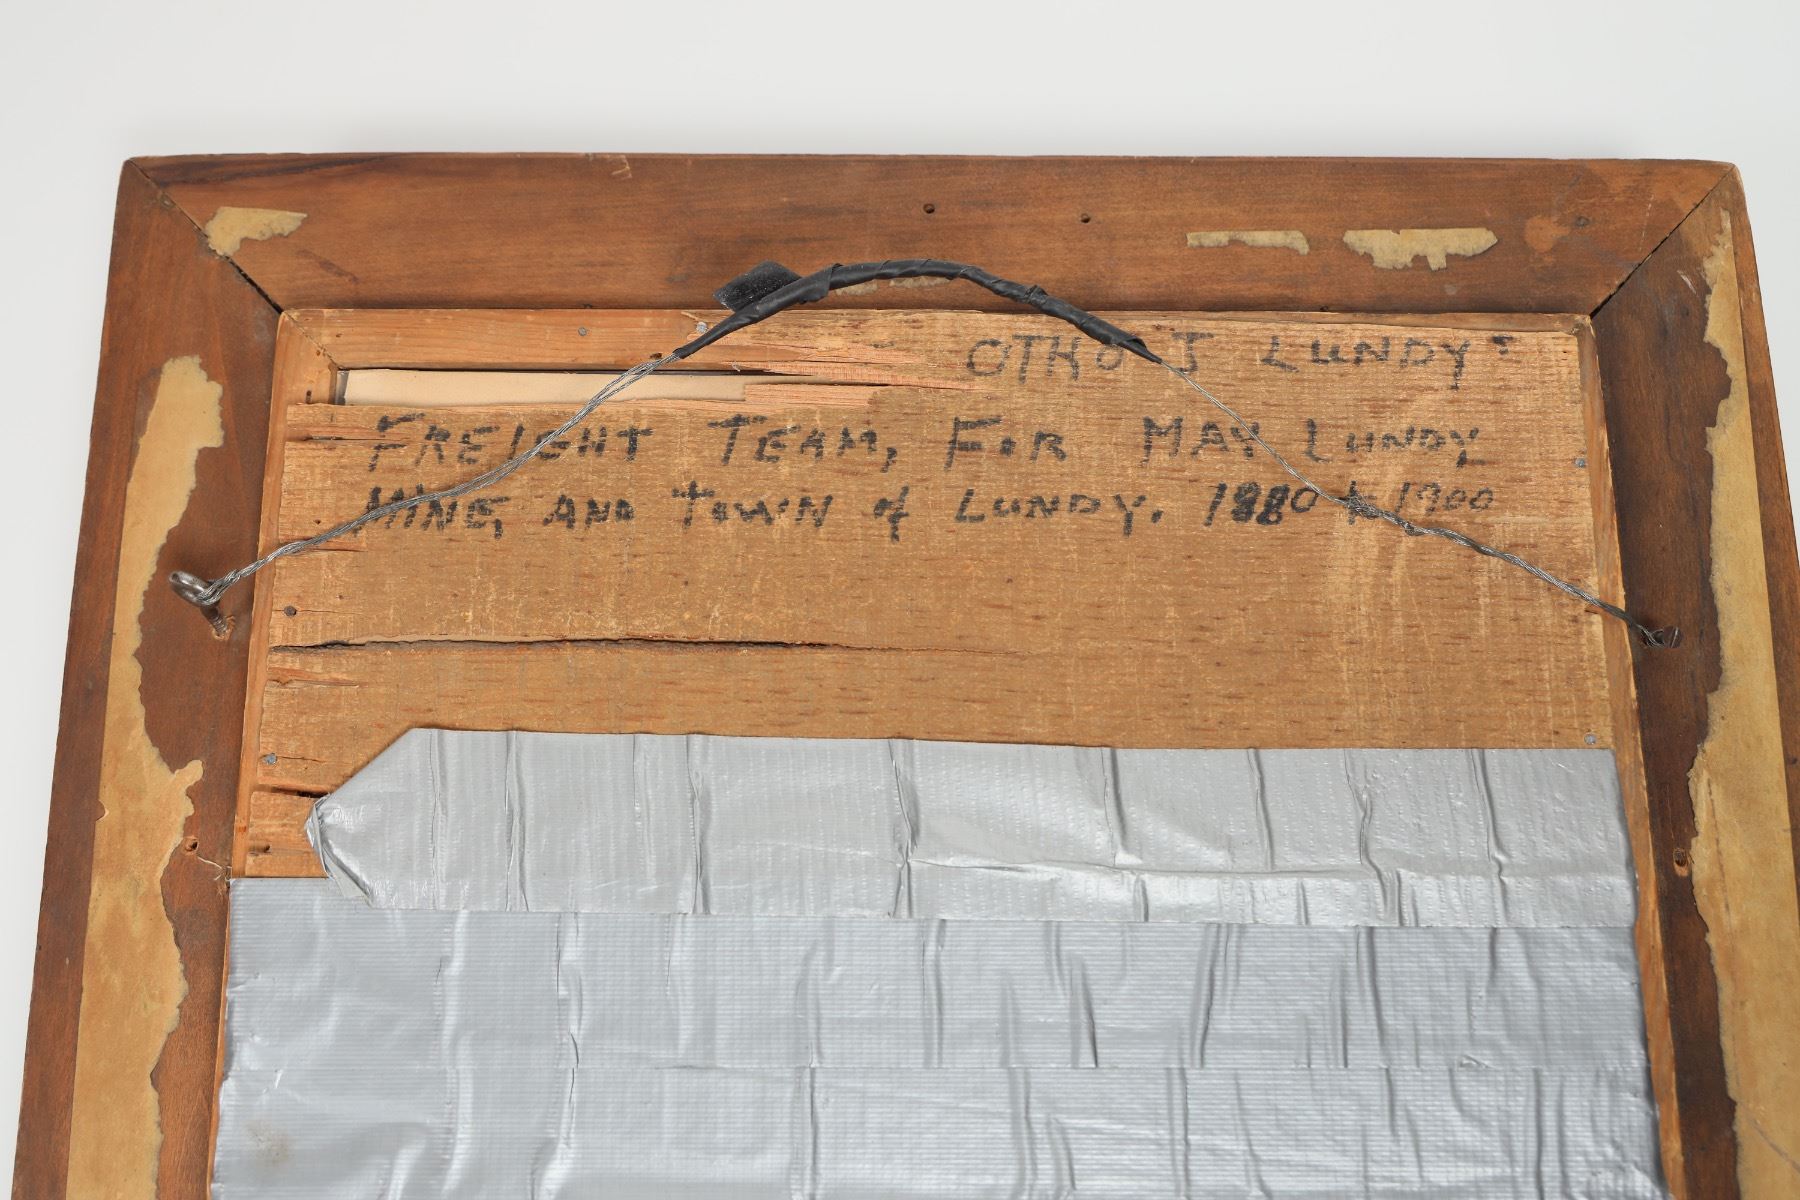 OTHO J LUNDY'S
FREIGHT TEAM, FOR MAY LUNDY
MINE, AND TOWN of LUNDY. 1880 to 1900